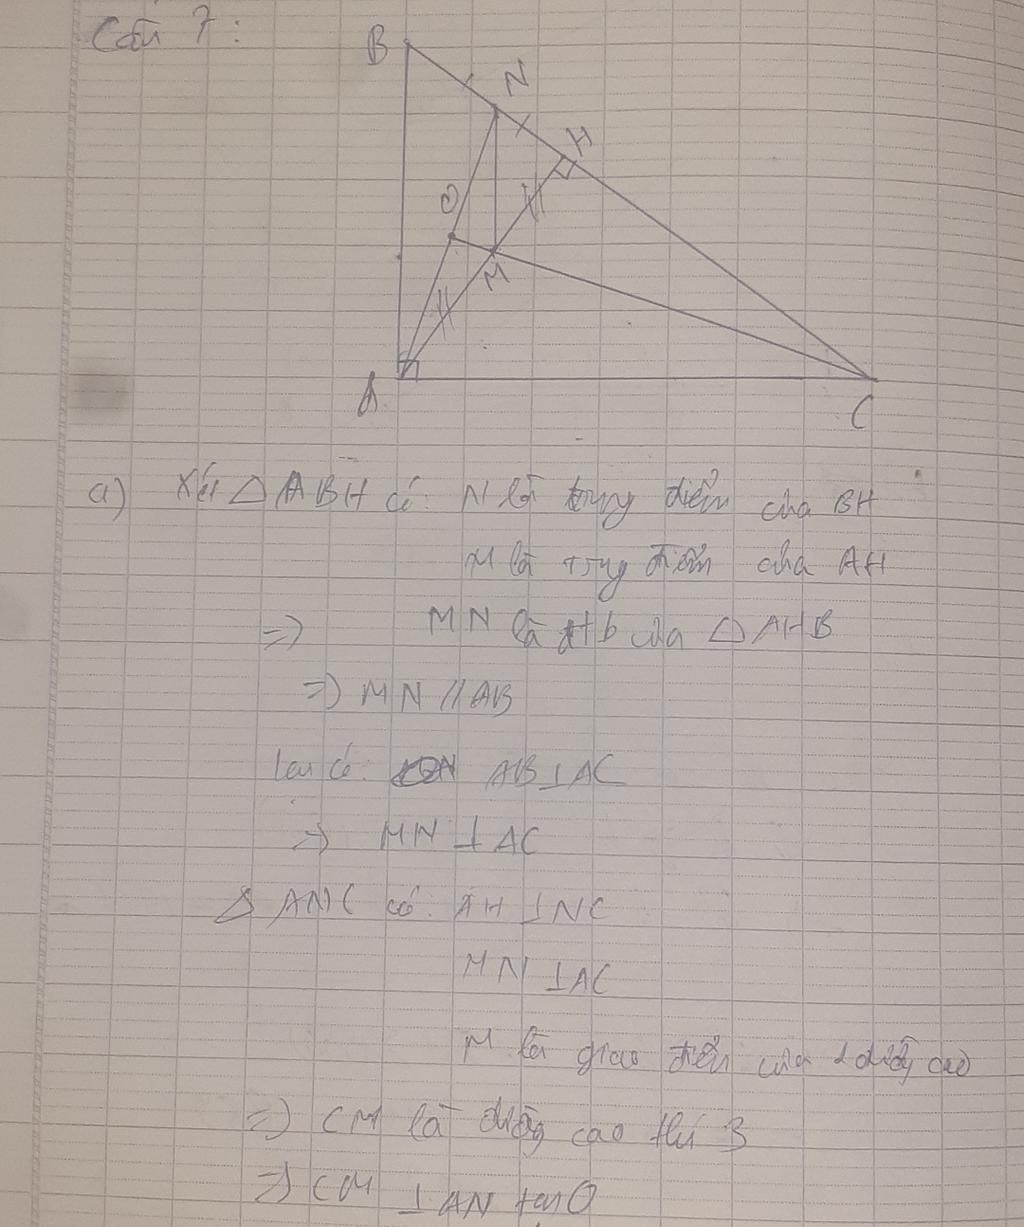 Câu 7:
B
N
H
O
M
A
C
a) Xét △ ABH có: N là trung điểm của BH
M là trung điểm của AH
=> MN là đtb của △ AHB
=> MN // AB
Lại có: AB ⊥ AC
=> MN ⊥ AC
△ ANC có: AH ⊥ NC
MN ⊥ AC
M là giao điểm của 2 đường cao
=> CM là đường cao thứ 3
=> CM ⊥ AN tại O